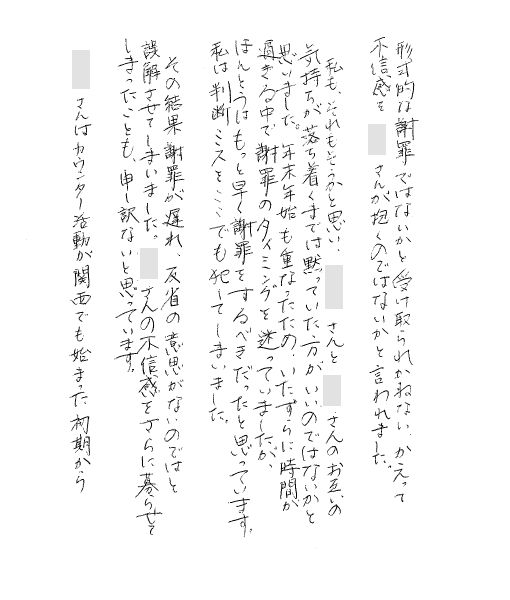 形式的な謝罪ではないかと受け取られかねない、かえって
不信感を　さんが抱くのではないかと言われました。
私も、それもそうかと思い、　さんと　さんのお互いの
気持ちが落ち着くまでは黙っていた方がいいのではないかと
思いました。年末年始も重なったため、いたずらに時間が
過ぎる中で謝罪のタイミングを迷っていましたが、
ほんとうはもっと早く謝罪をするべきだったと思っています。
私は判断ミスをここでも犯してしまいました。
その結果謝罪が遅れ、反省の意思がないのではと
誤解させてしまいました。　さんの不信感をさらに募らせて
しまったことも、申し訳ないと思っています。
さんはカウンター活動が関西でも始まった初期から